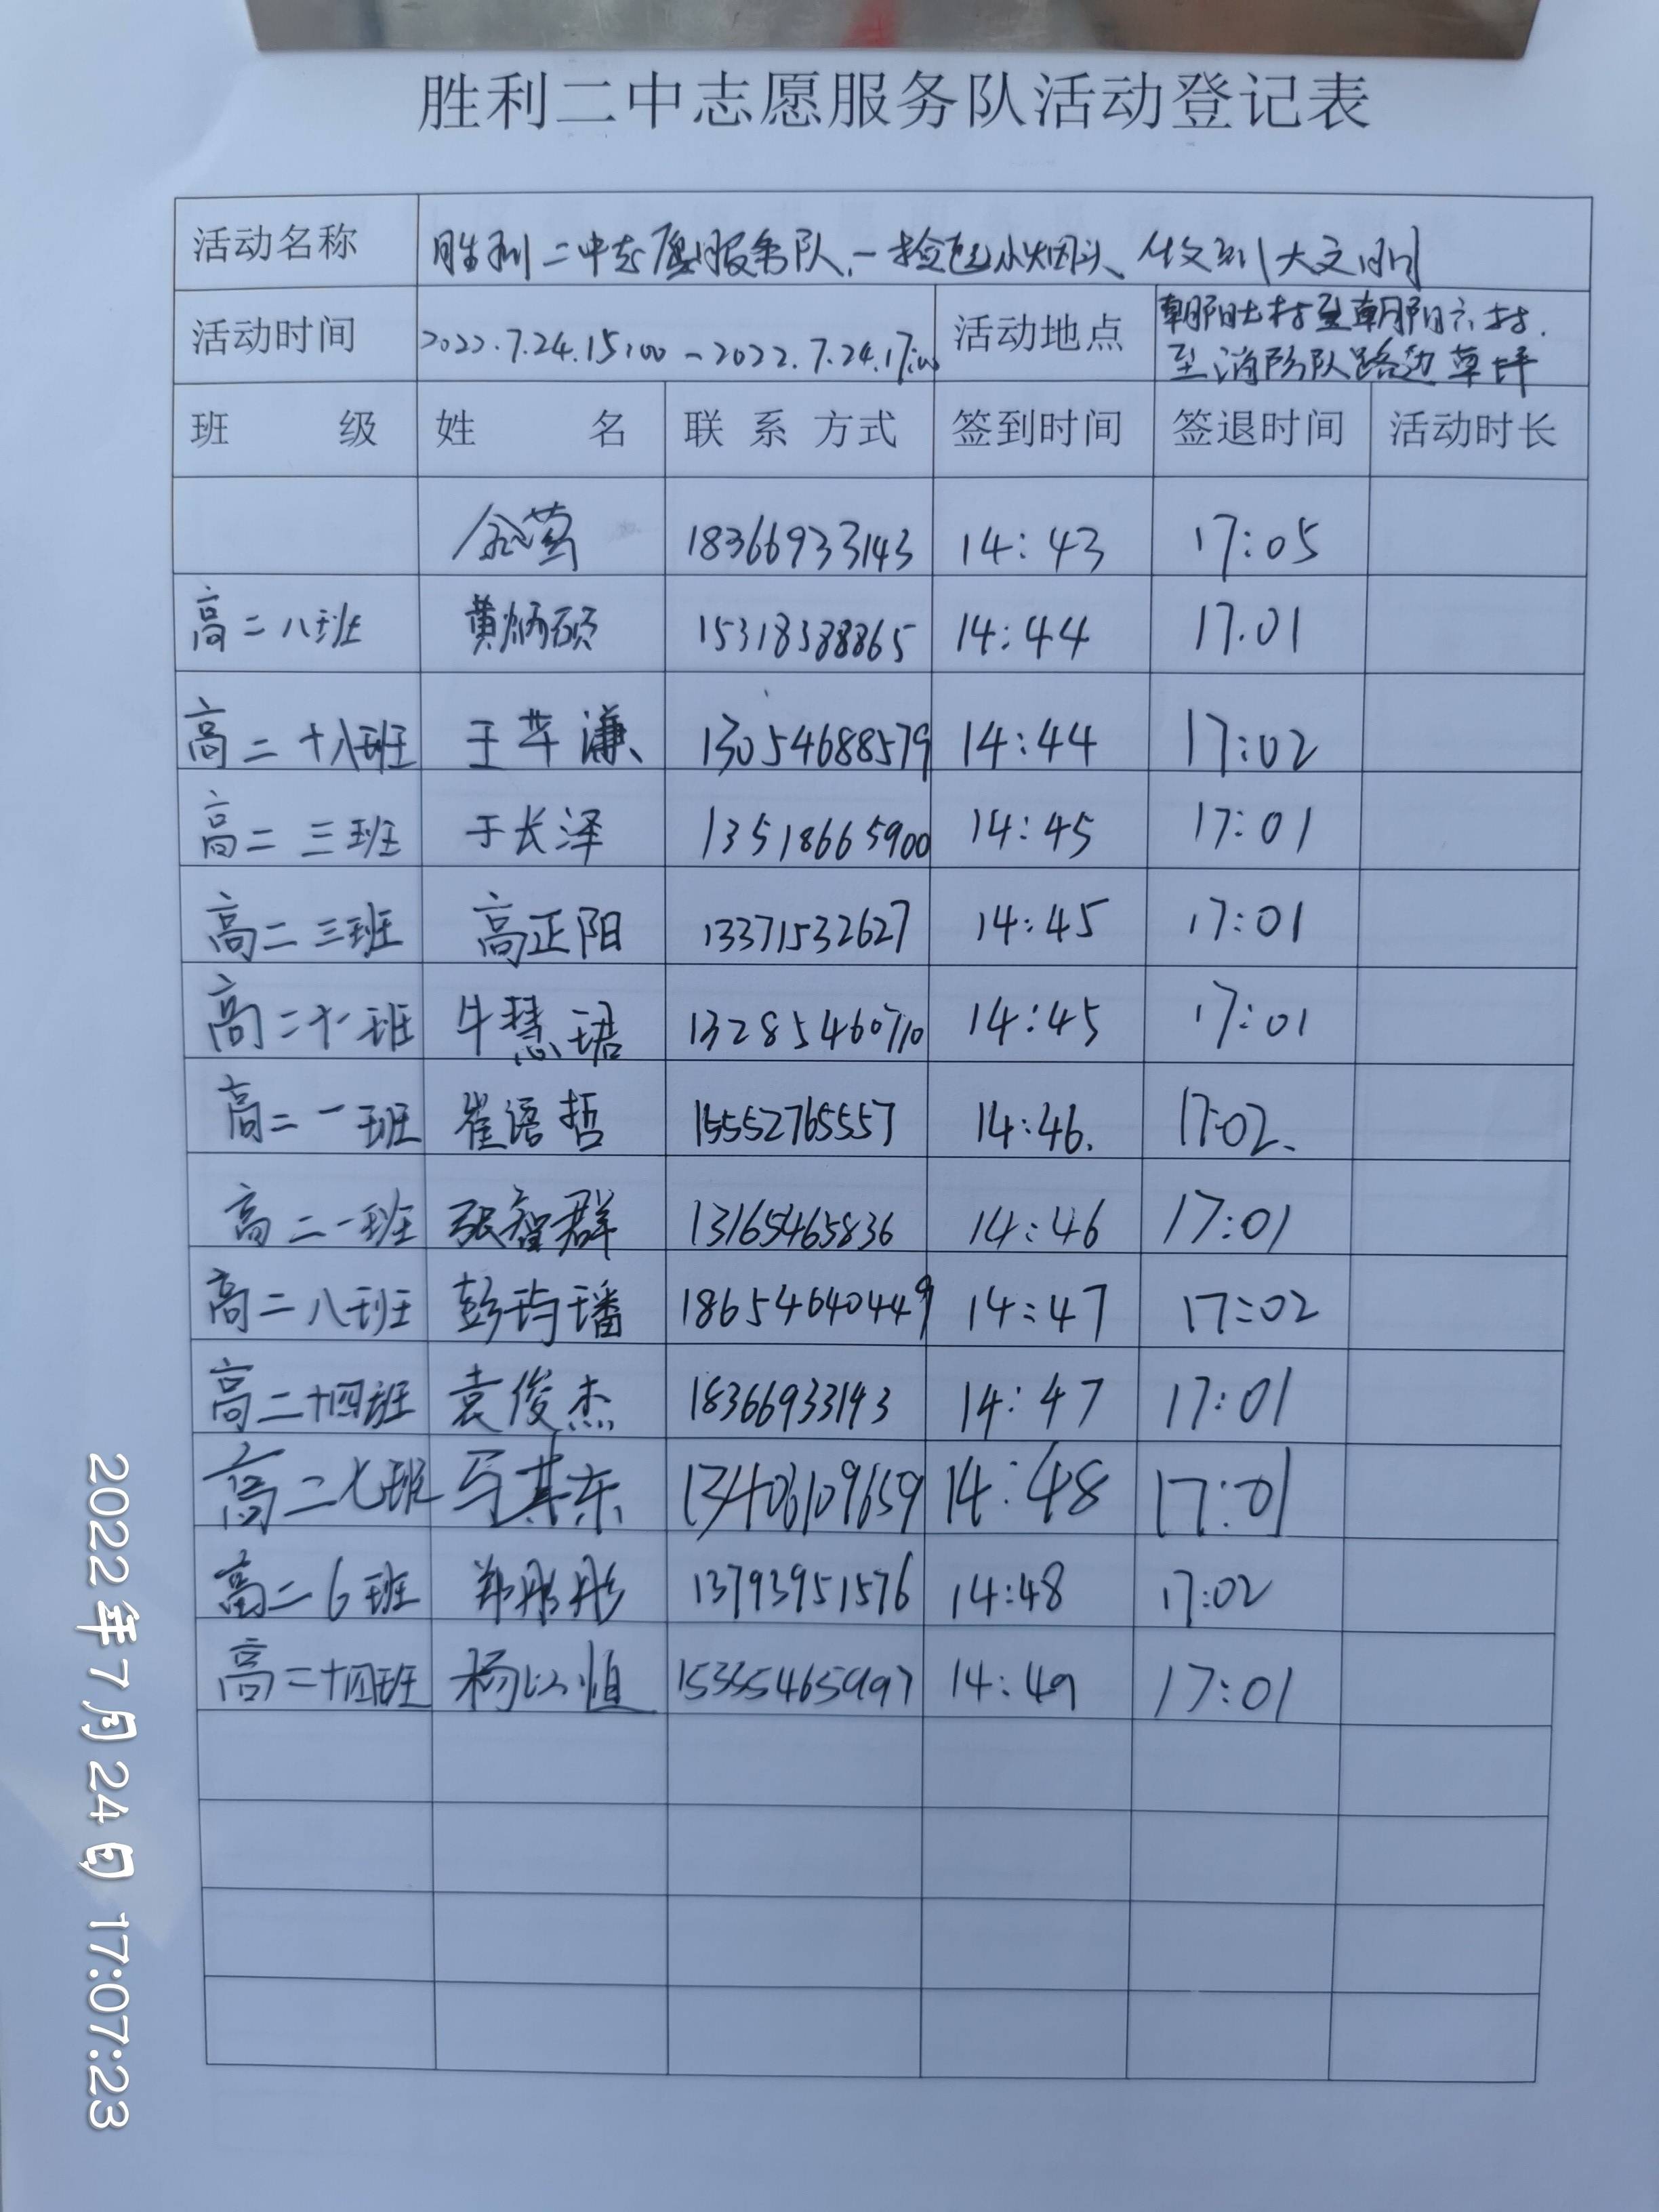 胜利二中志愿服务队活动登记表
活动名称 胜利二中志愿服务队、一捡起小烟头、做到大文明
活动时间 2022.7.24.15:00~2022.7.24.17:00 活动地点 朝阳七村至朝阳六村.
至消防队路边草坪
班 级 姓 名 联系方式 签到时间 签退时间 活动时长
18366933143 14:43 17:05
高二八班 黄炳硕 15318388865 14:44 17.01
高二十八班 王华谦 13054688579 14:44 17:02
高二三班 于长泽 13518665900 14:45 17:01
高二三班 高正阳 13371532627 14:45 17:01
高二十一班 牛慧珺 13285460710 14:45 17:01
高二一班 崔语哲 15552765557 14:46. 17:02、
高二一班 张智群 13165465836 14:46 17:01
高二八班 彭玙璠 18654640449 14:47 17:02
高二十四班 袁俊杰 18366933193 14:47 17:01
高二七班 马其东 13406109659 14:48 17:01
高二6班 郑彤彤 13793951576 14:48 17:02
高二十四班 杨以恒 14:49 17:01
2022年7月24日 17:07:23